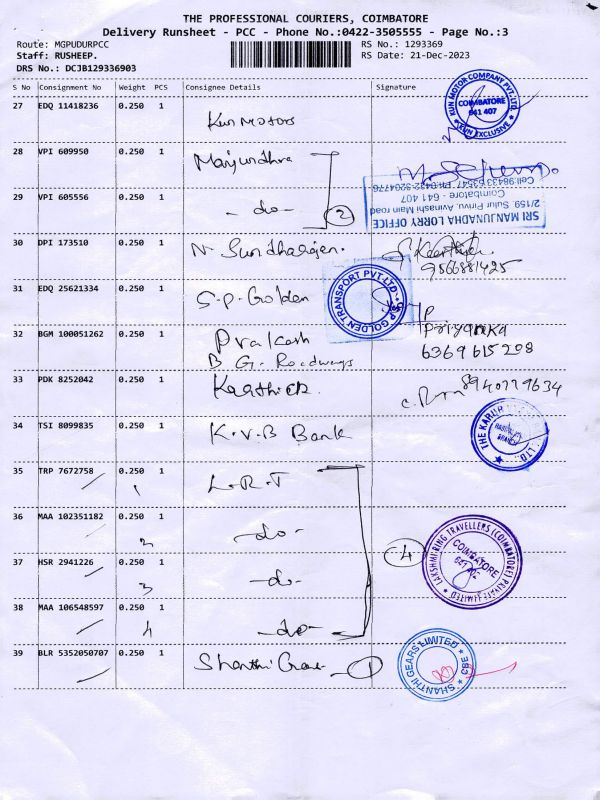 THE PROFESSIONAL COURIERS, COIMBATORE
Delivery Runsheet - PCC - Phone No.:0422-3505555 - Page No.:3
Route: MGPUDURPCC RS No.: 1293369
Staff: RUSHEEP. RS Date: 21-Dec-2023
DRS No.: DCJB129336903
S No Consignment No Weight PCS Consignee Details Signature
27 EDQ 11418236 0.250 1 Kun Motors
KUN MOTOR COMPANY PVT. LTD.
COIMBATORE
641 407
KUN EXCLUSIVE
28 VPI 609950 0.250 1 Manjundhra
29 VPI 605556 0.250 1 -do- 2
SRI MANJUNADHA LORRY OFFICE
2/159, Sulur Pirivu, Avinashi Main road
Coimbatore - 641 407
30 DPI 173510 0.250 1 N. Sundharajen.
9566881425
31 EDQ 25621334 0.250 1 S.P. Golden
S.P. GOLDEN TRANSPORT PVT LTD.
32 BGM 100051262 0.250 1 Prakash
B G. Roadways
Priyanka
6369615208
33 PDK 8252042 0.250 1 Kaarthick
8940779634
34 TSI 8099835 0.250 1 K.V.B Bank
THE KARUR
BRANCH
LTD.
35 TRP 7672758 0.250 1 L.R.T
1
36 MAA 102351182 0.250 1 -do-
2
37 HSR 2941226 0.250 1 -do-
3
38 MAA 106548597 0.250 1 -do-
4
4
LAKSHMI RING TRAVELLERS (COIMBATORE) PRIVATE LIMITED
COIMBATORE
39 BLR 5352050707 0.250 1 Shanthi Gear 1
SHANTHI GEARS LIMITED
CBE